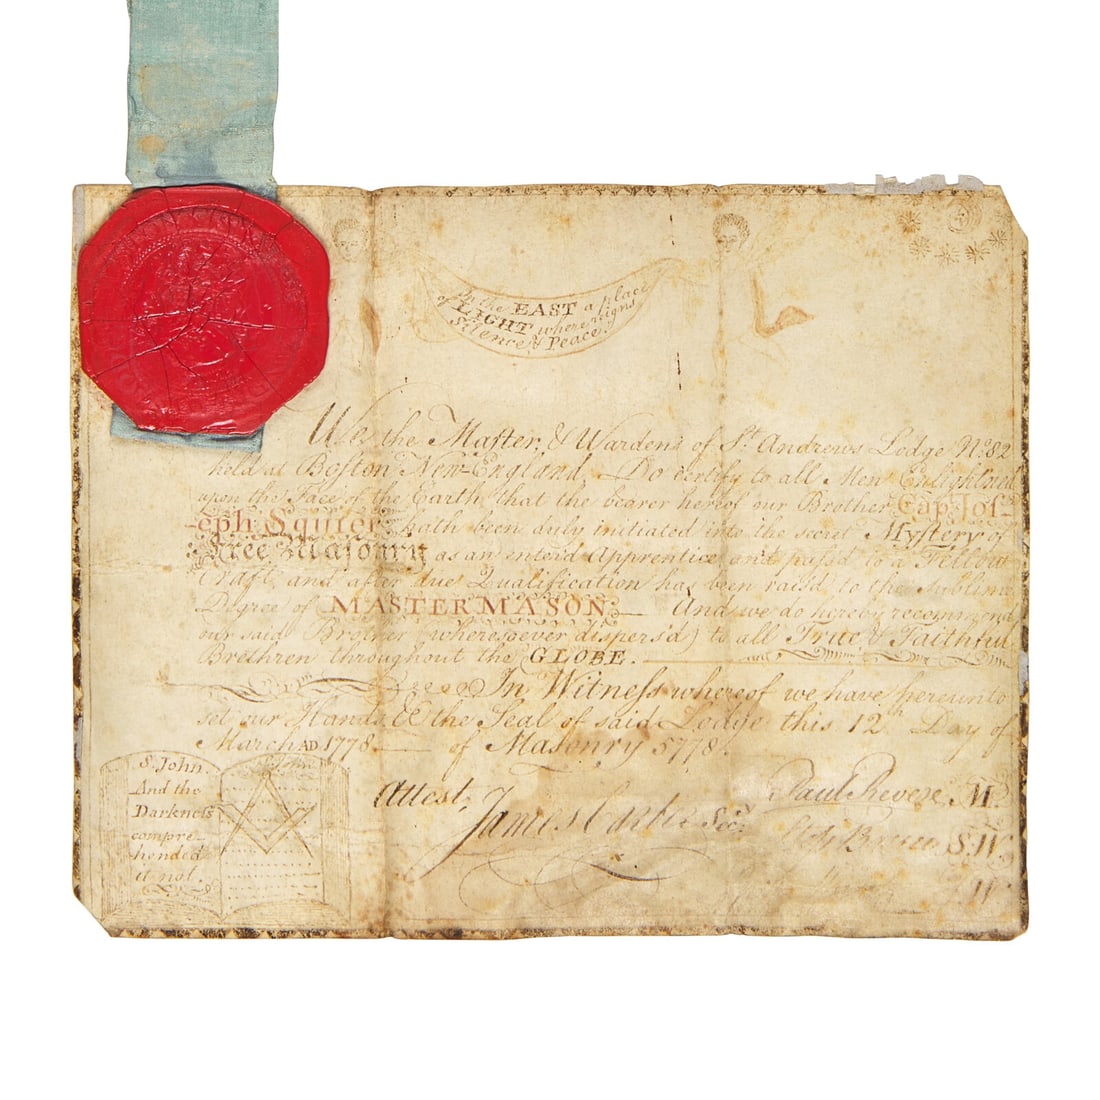 In the EAST a place
of LIGHT where reigns
Silence & Peace.
We the Master, & Wardens of St. Andrews Lodge No. 82
held at Boston New-England, Do certify to all Men Enlightned
upon the Face of the Earth, that the bearer hereof our Brother Cap. Jos-
eph Squier hath been duly initiated into the secret Mystery of
Free Masonry as an enterd Apprentice and pass'd to a Fellow
Craft, and after due Qualification has been rais'd to the sublime
Degree of MASTER MASON. And we do hereby recommend
our said Brother (wheresoever dispers'd) to all True & Faithful
Brethren throughout the GLOBE.
In Witness whereof we have hereunto
set our Hands, & the Seal of said Lodge this 12th Day of
March AD. 1778 of Masonry 5778.
S. John.
And the
Darkness
compre-
hended
it not.
S. John
Attest,
James Carter Secy.
Paul Revere M.
S.W.
J.W.